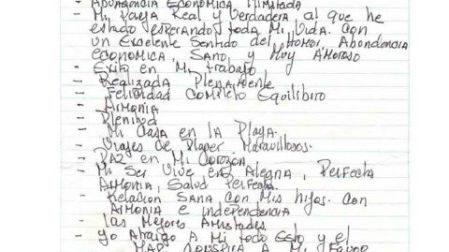 - Abundancia Economica Ilimitada
- Mi Pareja Real y Verdadera al que he
estado esperando toda Mi Vida. con
un Excelente Sentido del Humor Abundencia
economica - Sano y Muy Amoroso
- Exito en Mi Trabajo
- Realizada Plenamente
- Felicidad Completo Equilibiro
- Armonia
- Plenitud
- Mi Casa en la Playa.
- Viajes de Placer Maravillosos.
- Paz en Mi Corazon
- Mi Ser Vive en Alegria, Perfecta
Armonia, Salud Perfecta.
- Relacion Sana con Mis hijos. con
Armonia e independencia
- las Mejores Amistades
- yo Atraigo A Mi todo Esto y el
Mar conspira A Mi Favor